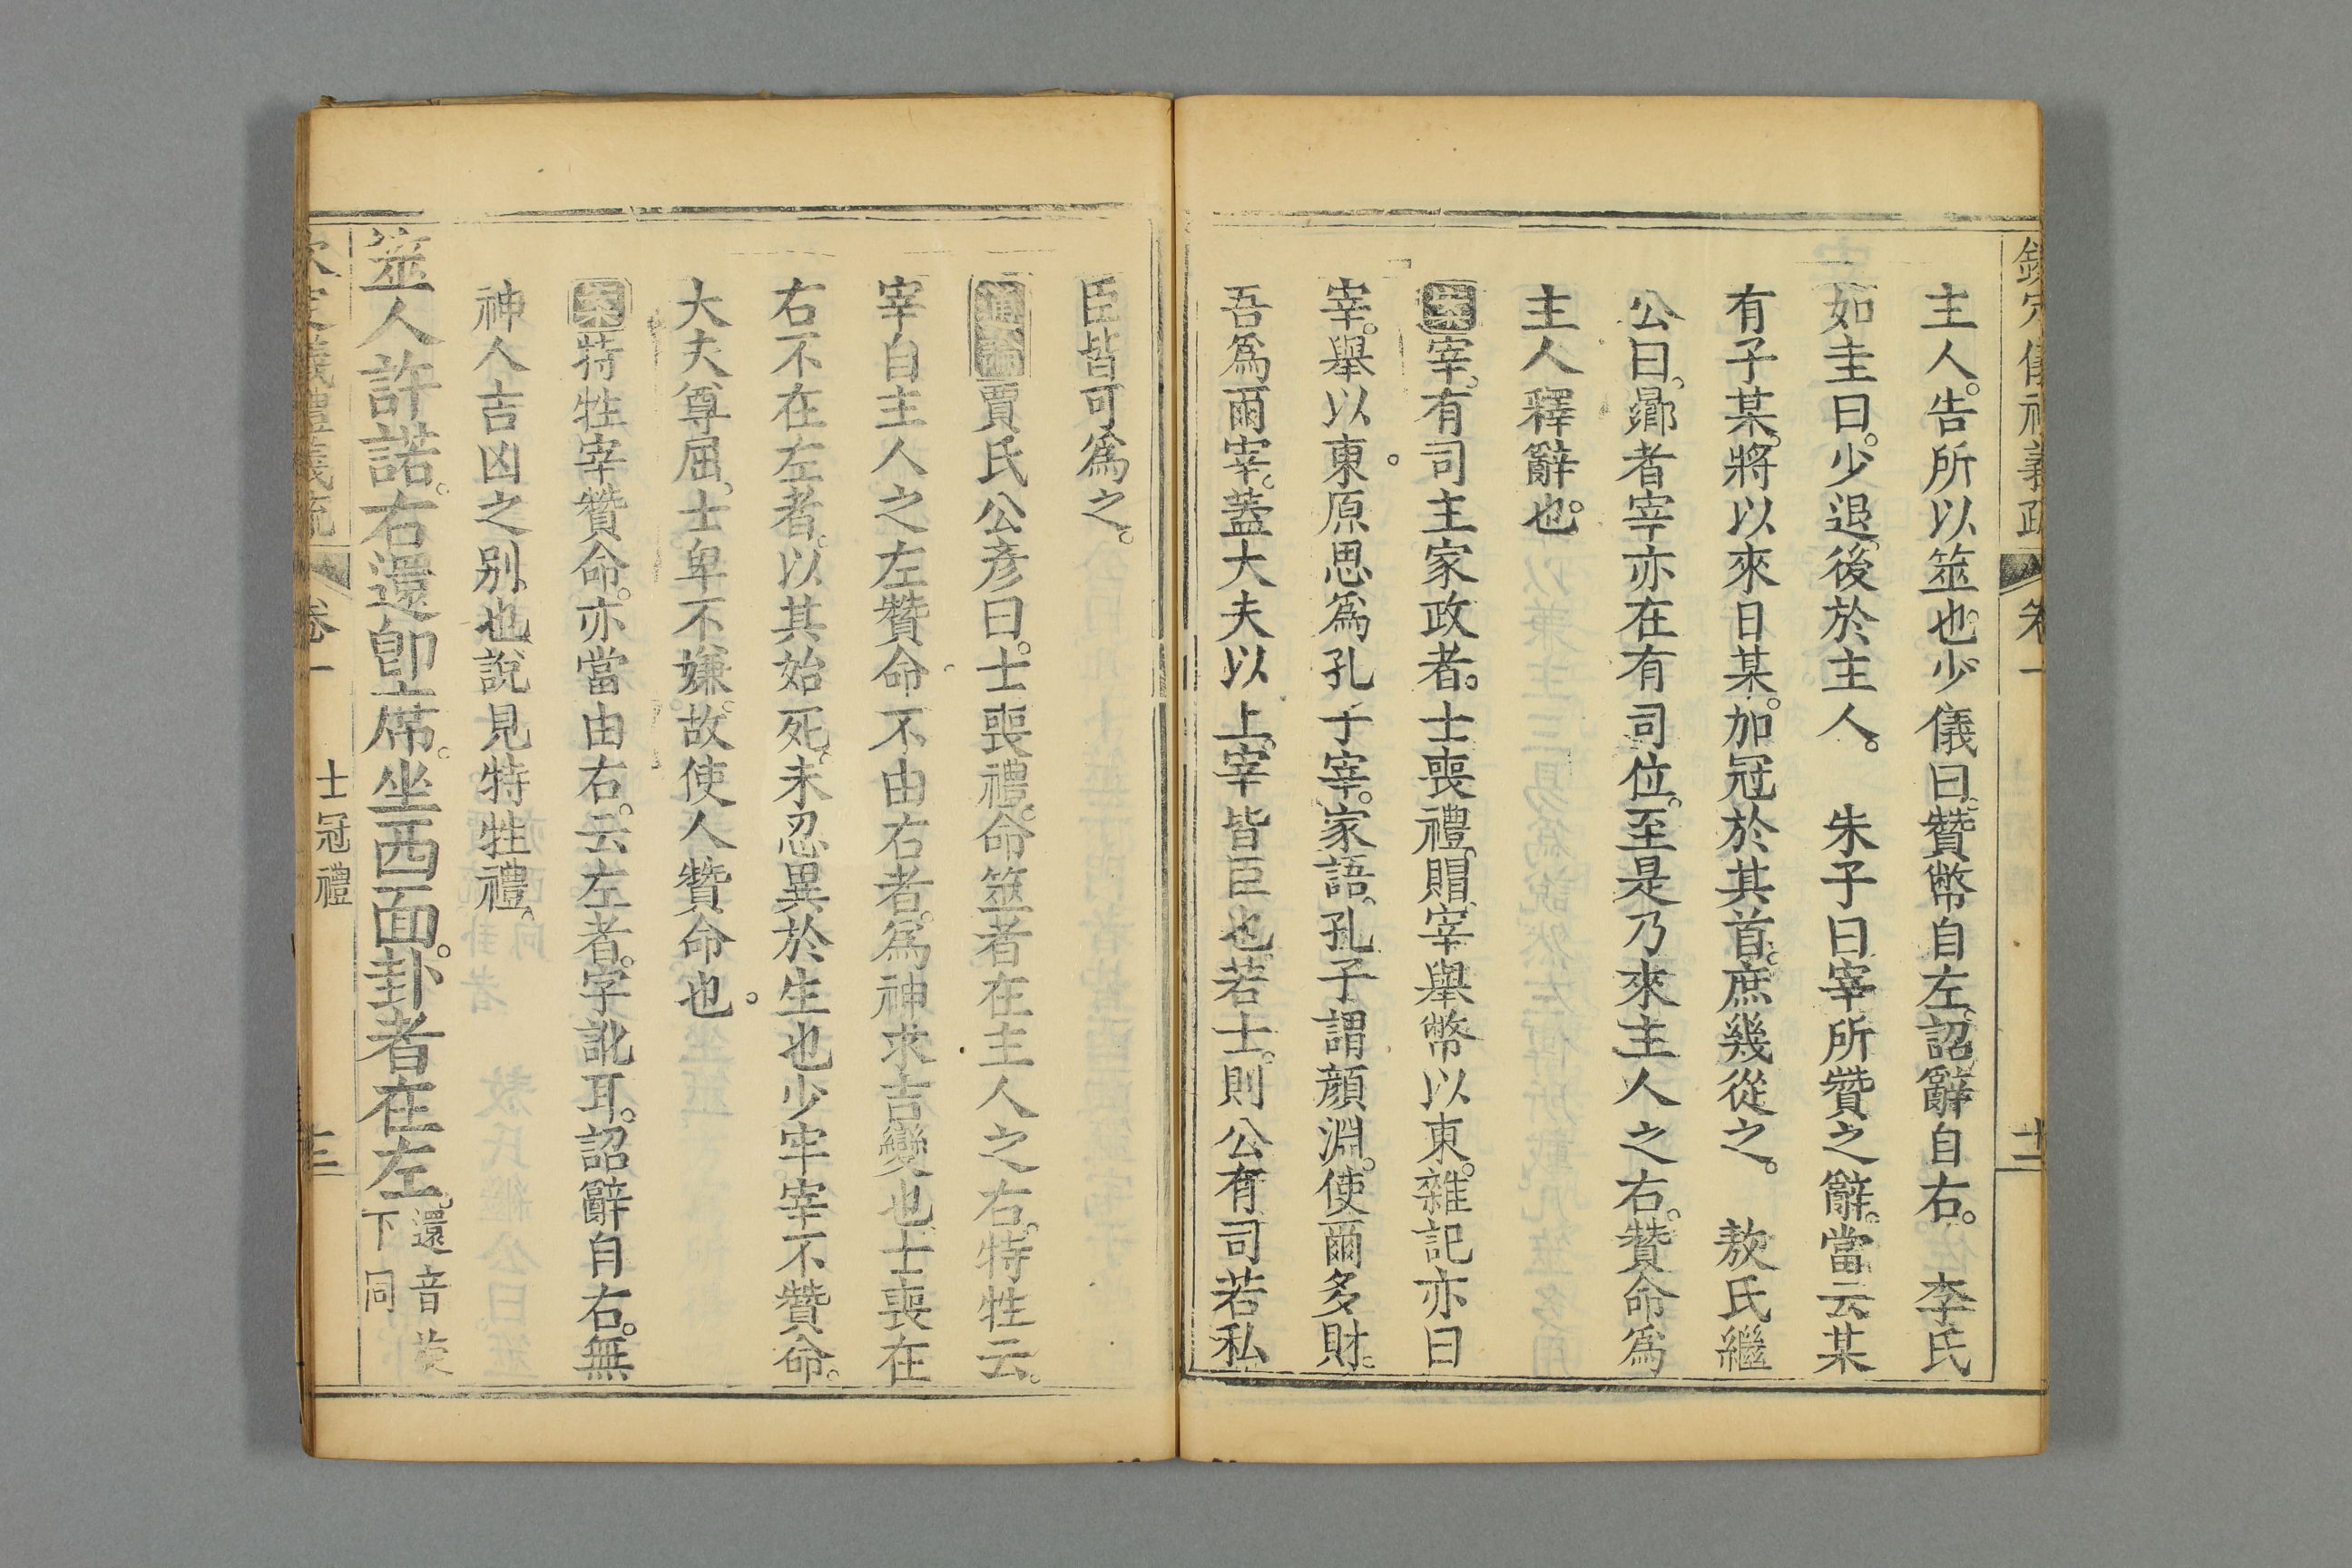 欽定儀禮義疏 卷一 十二
主人。告所以筮也。少儀曰。贊幣自左。詔辭自右。 李氏
如圭曰。少退。後於主人。 朱子曰宰所贊之辭。當云某
有子某。將以來日某。加冠於其首。庶幾從之。 敖氏繼
公曰。曏者宰亦在有司位。至是乃來主人之右。贊命爲
主人釋辭也。
案宰。有司主家政者。士喪禮。賵宰舉幣以東。雜記亦曰
宰。舉以東。原思爲孔子宰。家語。孔子謂顔淵。使爾多財。
吾爲爾宰。蓋大夫以上。宰皆臣也。若士。則公有司若私
臣皆可爲之。
通論賈氏公彥曰。士喪禮。命筮者在主人之右。特牲云。
宰自主人之左贊命。不由右者。爲神求吉變也。士喪在
右不在左者。以其始死。未忍異於生也少牢宰不贊命。
大夫尊屈。士卑不嫌。故使人贊命也。
案特牲宰贊命。亦當由右。云左者。字訛耳。詔辭自右。無
神人吉凶之别。也說見特牲禮。
筮人許諾。右還卽席。坐西面。卦者在左。還音旋
下同
欽定儀禮義疏 卷一 士冠禮 十三